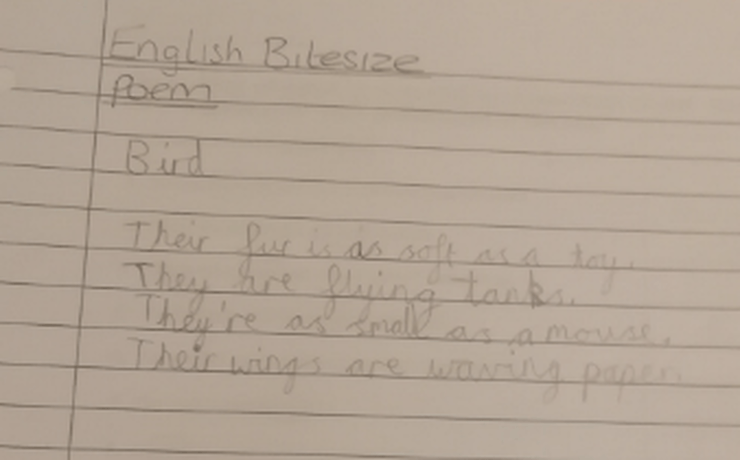 English Bitesize
Poem
Bird
Their fur is as soft as a toy.
They are flying tanks.
They're as small as a mouse.
Their wings are waving paper.